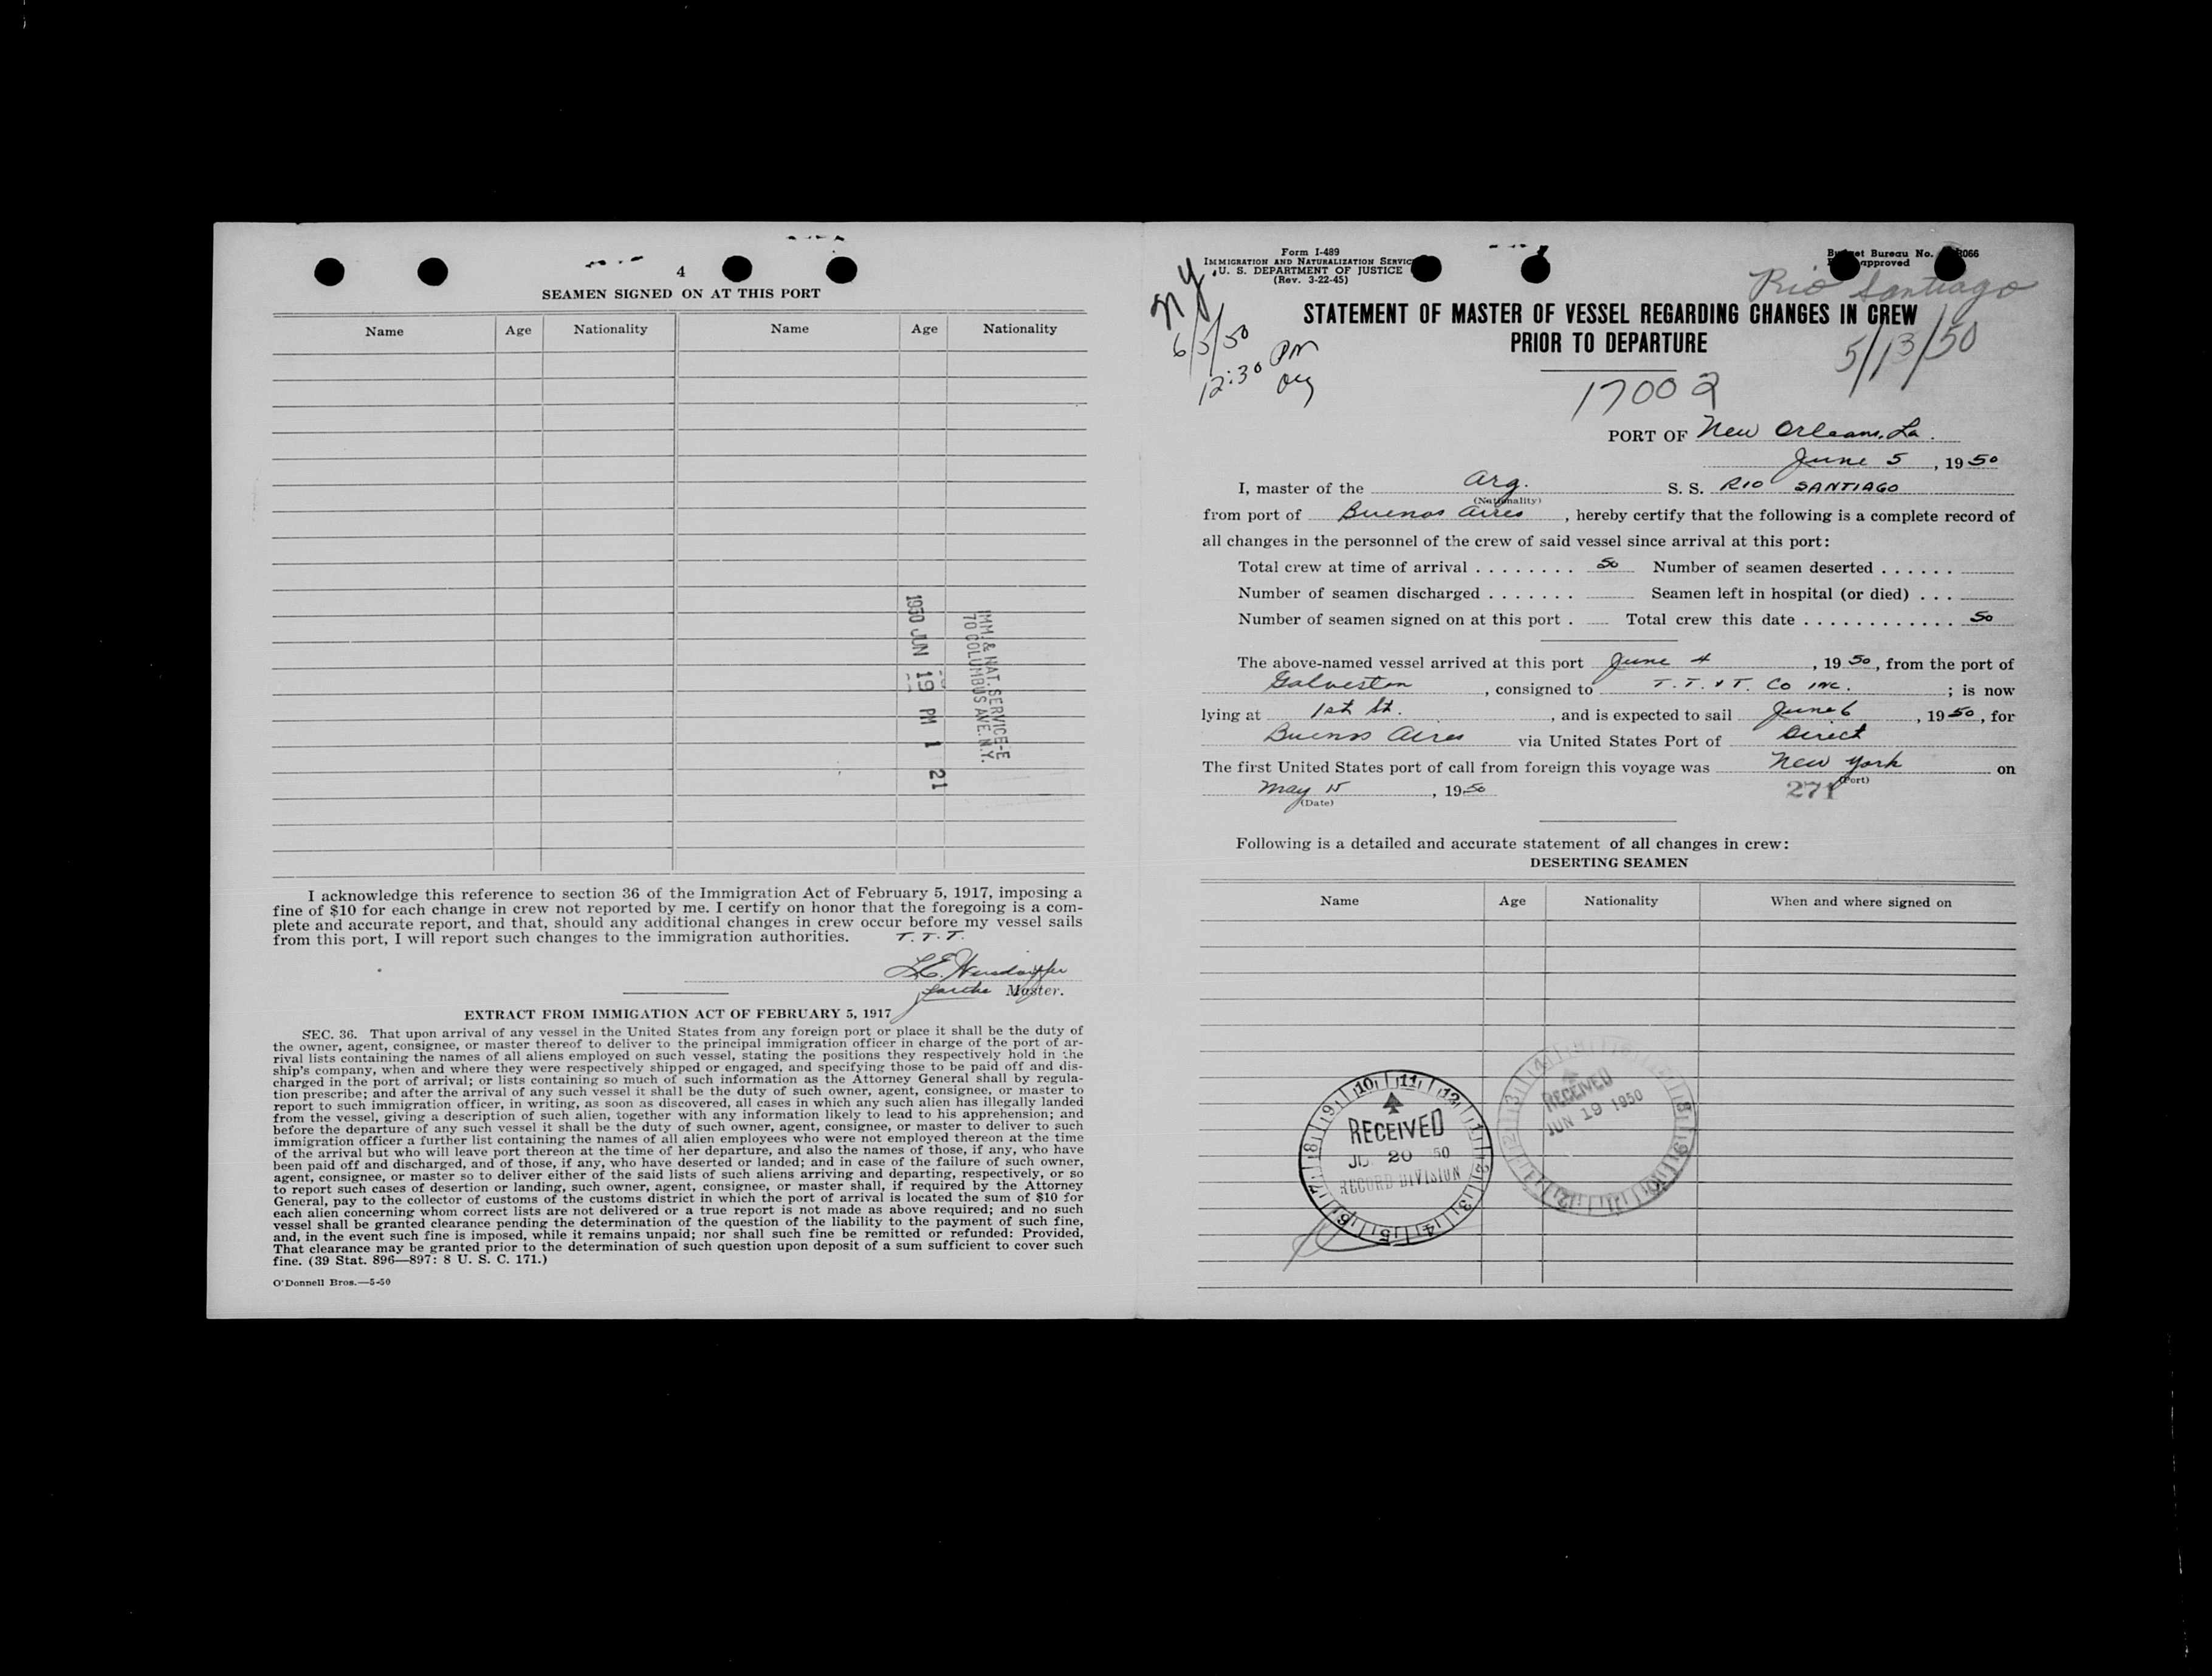 4
SEAMEN SIGNED ON AT THIS PORT
Name Age Nationality Name Age Nationality
1950 JUN 19 PM 1 21
IMM. & NAT. SERVICE-E
70 COLUMBUS AVE. N.Y.
I acknowledge this reference to section 36 of the Immigration Act of February 5, 1917, imposing a
fine of $10 for each change in crew not reported by me. I certify on honor that the foregoing is a com-
plete and accurate report, and that, should any additional changes in crew occur before my vessel sails
from this port, I will report such changes to the immigration authorities. T. T. T.
Master.
EXTRACT FROM IMMIGATION ACT OF FEBRUARY 5, 1917
SEC. 36. That upon arrival of any vessel in the United States from any foreign port or place it shall be the duty of
the owner, agent, consignee, or master thereof to deliver to the principal immigration officer in charge of the port of ar-
rival lists containing the names of all aliens employed on such vessel, stating the positions they respectively hold in the
ship's company, when and where they were respectively shipped or engaged, and specifying those to be paid off and dis-
charged in the port of arrival; or lists containing so much of such information as the Attorney General shall by regula-
tion prescribe; and after the arrival of any such vessel it shall be the duty of such owner, agent, consignee, or master to
report to such immigration officer, in writing, as soon as discovered, all cases in which any such alien has illegally landed
from the vessel, giving a description of such alien, together with any information likely to lead to his apprehension; and
before the departure of any such vessel it shall be the duty of such owner, agent, consignee, or master to deliver to such
immigration officer a further list containing the names of all alien employees who were not employed thereon at the time
of the arrival but who will leave port thereon at the time of her departure, and also the names of those, if any, who have
been paid off and discharged, and of those, if any, who have deserted or landed; and in case of the failure of such owner,
agent, consignee, or master so to deliver either of the said lists of such aliens arriving and departing, respectively, or so
to report such cases of desertion or landing, such owner, agent, consignee, or master shall, if required by the Attorney
General, pay to the collector of customs of the customs district in which the port of arrival is located the sum of $10 for
each alien concerning whom correct lists are not delivered or a true report is not made as above required; and no such
vessel shall be granted clearance pending the determination of the question of the liability to the payment of such fine,
and, in the event such fine is imposed, while it remains unpaid; nor shall such fine be remitted or refunded: Provided,
That clearance may be granted prior to the determination of such question upon deposit of a sum sufficient to cover such
fine. (39 Stat. 896—897: 8 U. S. C. 171.)
O'Donnell Bros.—5-50
Form I-489
IMMIGRATION AND NATURALIZATION SERVIC
U. S. DEPARTMENT OF JUSTICE
(Rev. 3-22-45)
Bureau No. 066
approved
NY
6/5/50
12:30 PM
Rio Santiago
5/13/50
STATEMENT OF MASTER OF VESSEL REGARDING CHANGES IN CREW
PRIOR TO DEPARTURE
17002
PORT OF New Orleans, La.
June 5, 1950
I, master of the Arg. S. S. RIO SANTIAGO
(Nationality)
from port of Buenos Aires, hereby certify that the following is a complete record of
all changes in the personnel of the crew of said vessel since arrival at this port:
Total crew at time of arrival . . . . . . . . 50 Number of seamen deserted . . . . . .
Number of seamen discharged . . . . . . . Seamen left in hospital (or died) . . .
Number of seamen signed on at this port . Total crew this date . . . . . . . . . . . . 50
The above-named vessel arrived at this port June 4, 1950, from the port of
Galveston, consigned to T. T. & T. Co INC.; is now
lying at 1st St., and is expected to sail June 6, 1950, for
Buenos Aires via United States Port of Direct
The first United States port of call from foreign this voyage was New York on
(Port)
May 15, 1950
(Date)
271
Following is a detailed and accurate statement of all changes in crew:
DESERTING SEAMEN
Name Age Nationality When and where signed on
RECEIVED
20 50
RECORD DIVISION
RECEIVED
JUN 19 1950